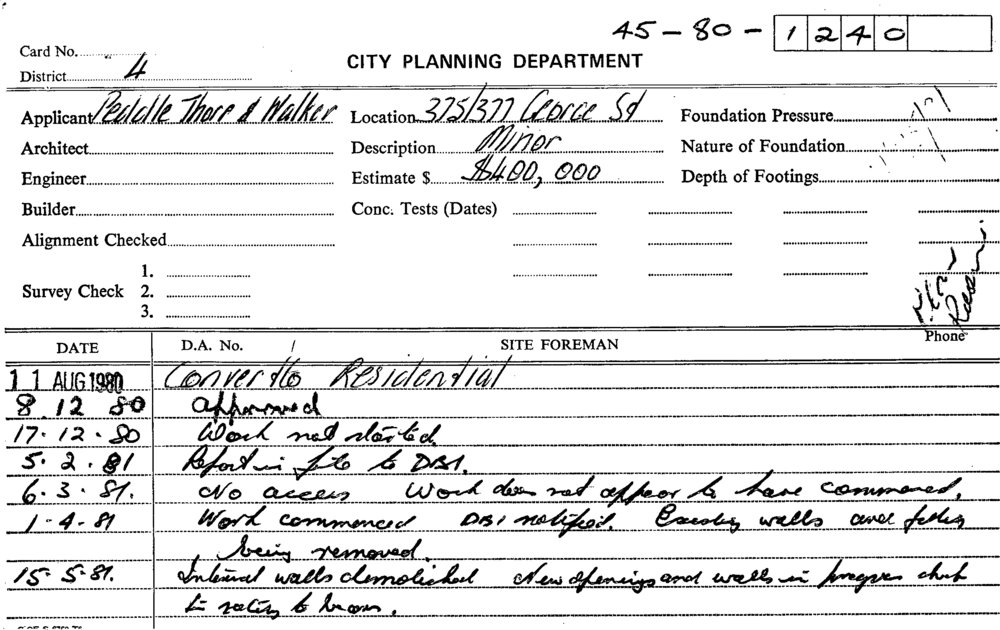 45-80-1240
Card No.
District 4
CITY PLANNING DEPARTMENT
Applicant Peddle Thorp & Walker Location 375/377 George St Foundation Pressure
Architect Description Minor Nature of Foundation
Engineer Estimate $ $400,000 Depth of Footings
Builder Conc. Tests (Dates)
Alignment Checked
1.
Survey Check 2.
3.
Phone
DATE D.A. No. SITE FOREMAN
11 AUG 1980 Convert to Residential
8.12 80 approved
17.12.80 Work not started.
5.2.81 Report in file to DBI.
6.3.81. No access Work does not appear to have commenced.
1-4-81 Work commenced DBI notified. Existing walls and
being removed.
15.5.81. Internal walls demolished New openings and walls in progress